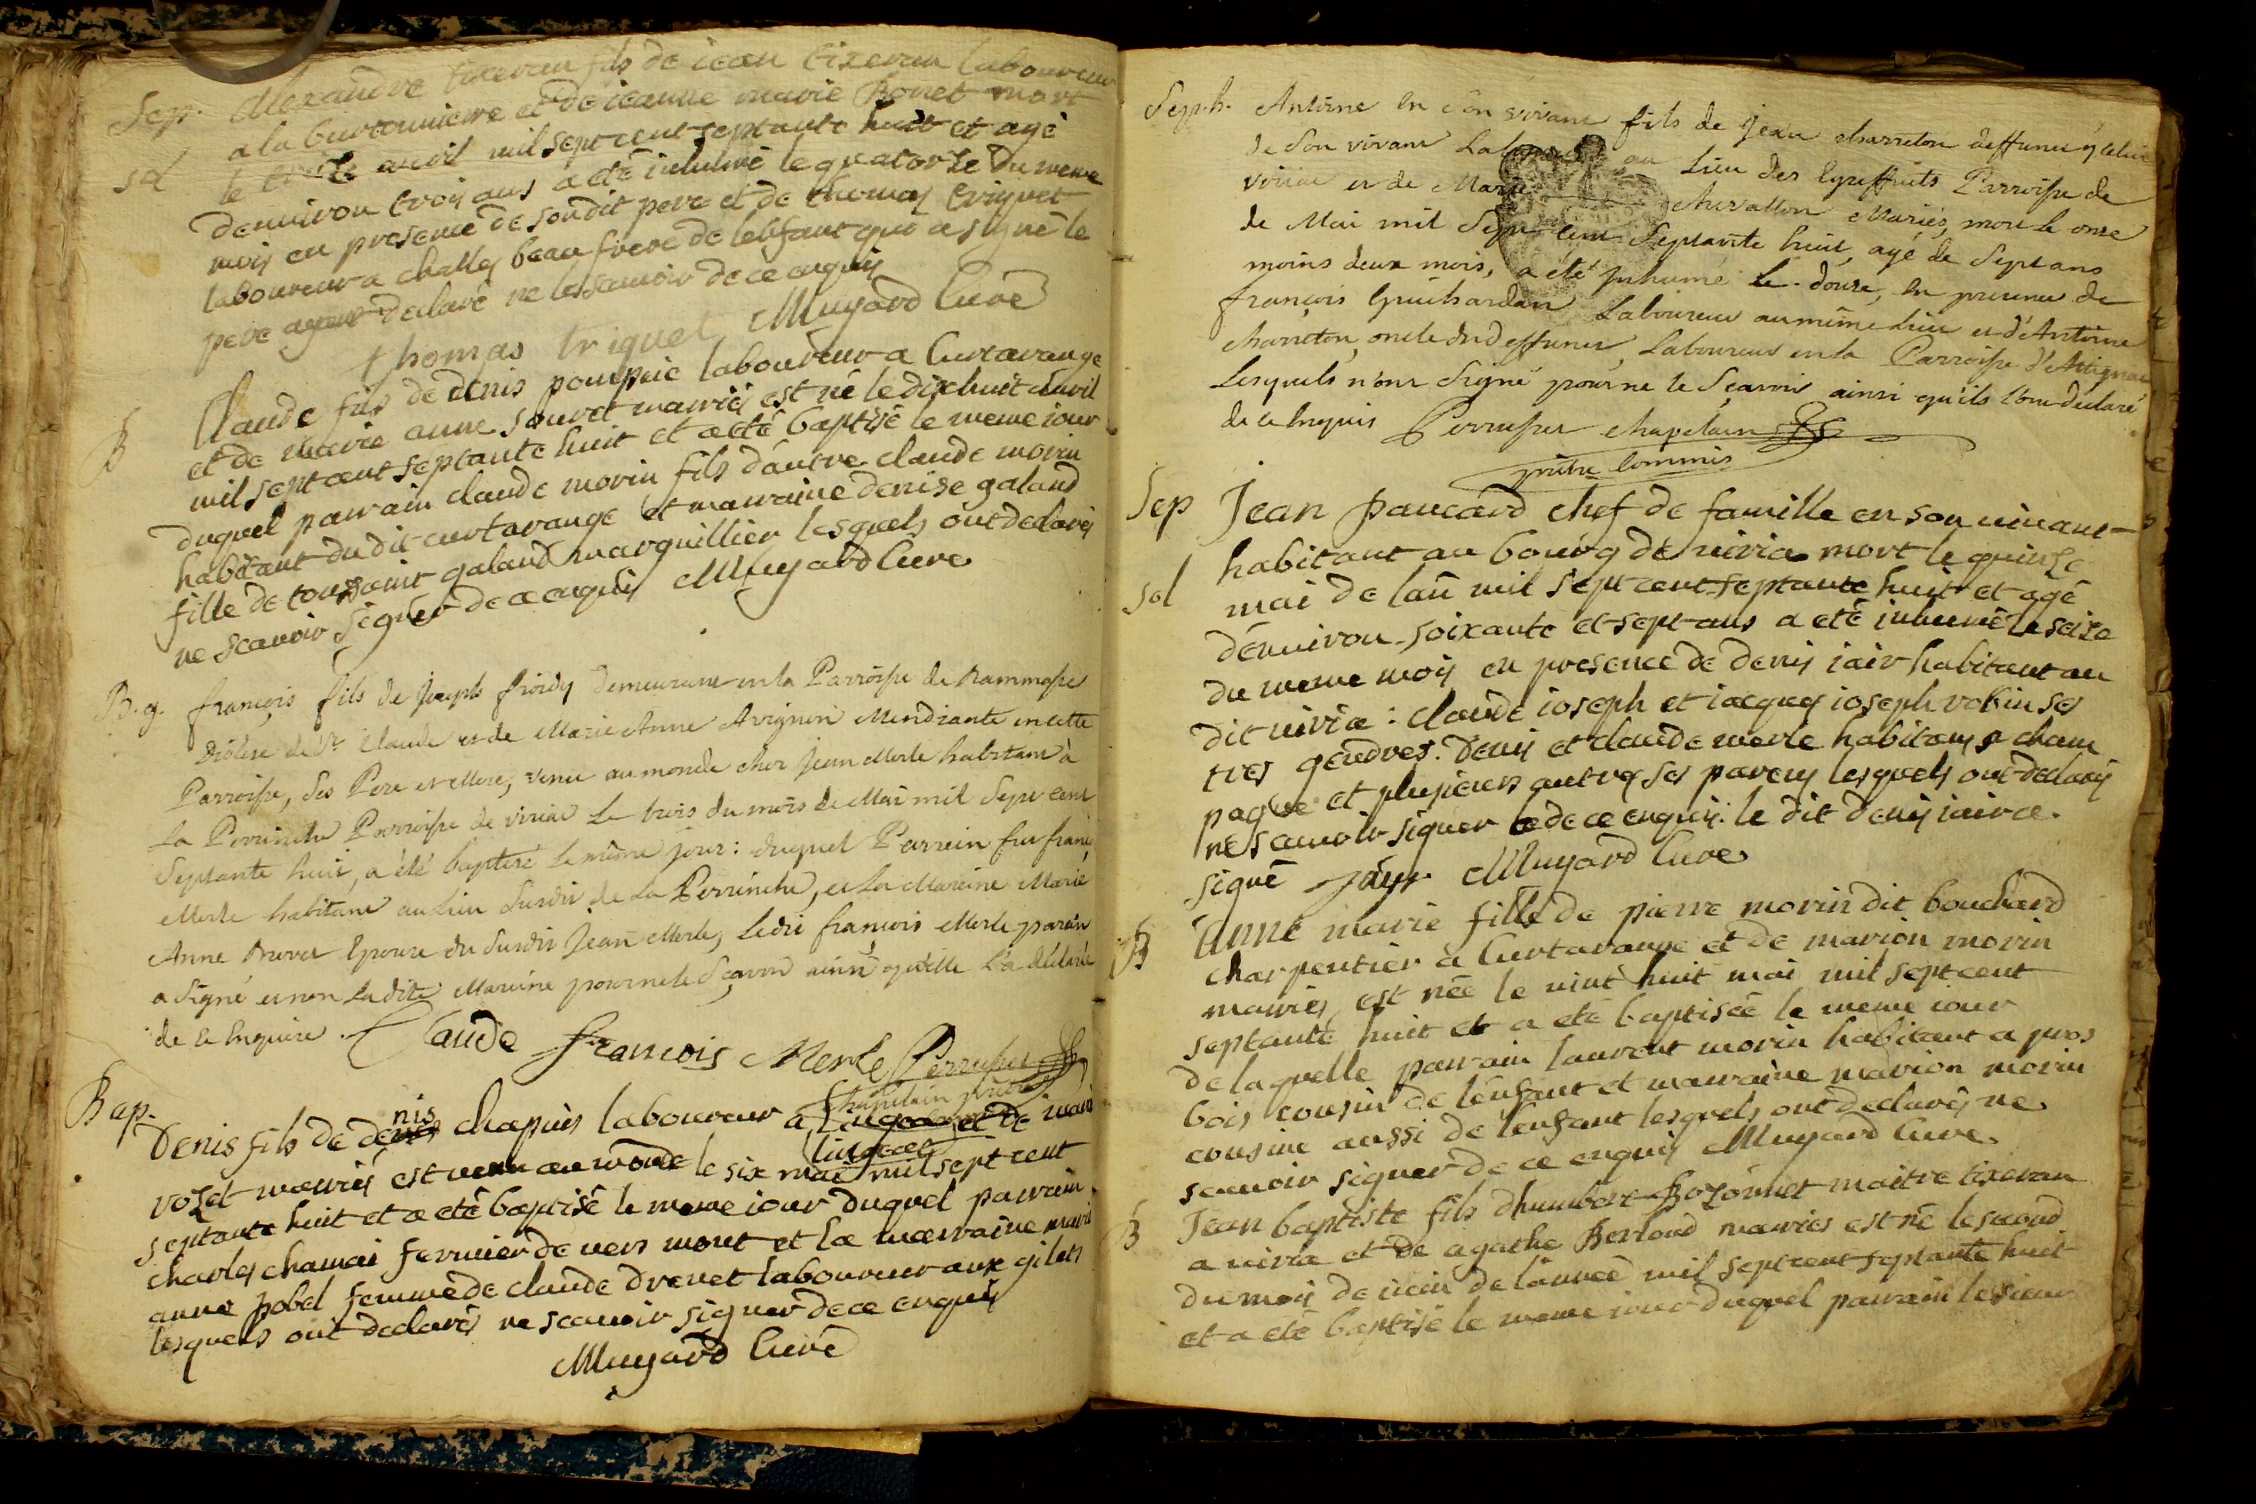 Sep. Alexandre tixeran fils de jean tixeran laboureur
a la curtonniere et de jeanne marie Bonet mort
sol le treize avril mil sept cent septante huit et agé
denuiron trois ans a été inhumé le quatorze du meme
mois en presence de son dit pere et de thomas triquet
laboureur a challes beau frere de lenfant qui a signé le
pere ayant declaré ne le scauoir de ce enquis
thomas triquet Muyard Curé
B Claude fils de denis pompuie laboureur a Curtarange
et de marie anne souret mariés est né le dix huit avril
mil sept cent septante huit et a été baptisé le meme jour
duquel parrain claude morin fils d'autre claude morin
habitant du dit curtarange et marraine denise galand
fille de toussaint galand marguillier lesquels ont declarés
ne scavoir signer de ce enquis Muyard Cure
B. g. françois fils de Joseph froidy demeurant en la Parroisse de
Diocese de St Claude et de Marie Anne Avignon Mendiante en cette
Parroisse, ses Pere et Mere, venu au monde chez Jean Merle habitant à
la Perrinche Parroisse de viriac le trois du mois de Mai mil Sept cent
Septante huit, a été baptisé le même jour: duquel Parrein fut franç.
Merle habitant au lieu Susdit de La Perrinche, et La Mareine Marie
Anne Brevet Epouse du Susdit Jean Merle, Ledit françois Merle parein
a Signé et non Ladite Mareine pour ne le Sçavoir ainsi qu'elle L'a déclarée
de ce Enquise.
Claude francois Merle Perruchet
Chapelain prêtre
Bap. Denis fils de denis chapuis laboureur a et de marie
lingeat
rozet mariés est venu au monde le six mai mil sept cent
septante huit et a eté baptisé le meme iour duquel parrain
charles chamai fermier de vers mont et la marraine marie
anne pobel femme de claude drevet laboureur aux gilets
lesquels ont declarés ne scauoir signer de ce enquis
Muyard Curé
Seph. Antoine en son vivant fils de Jean charreton deffunt
de Son vivant Laboureur au Lieu des Greffets Parroisse de
viriac et de Marie chevallon Mariés, mort le onze
de Mai mil Sept cent Septante huit, agé de Sept ans
moins deux mois, a été Inhumé le douze, en presence de
françois Guichardan Laboureur au même Lieu et d'Antoine
charreton, oncle du deffunt, Laboureur en la Parroisse d'Attignac
Lesquels n'ont Signé pour ne le Sçavoir ainsi qu'ils l'ont declaré
de ce Enquis Perruchet chapelain
prêtre Commis
Sep Jean paucard chef de famille en son uiuant
habitant au bourg de uiria mort le quinze
sol mai de lan mil sept cent septante huit et agé
dénuiron soixante et sept ans a eté inhumé le seize
du meme mois en presence de denis iair habitant au
dit uiria: claude ioseph et iacques ioseph robin ses
tres gendres. denis et claude merle habitans a cham
pagne et plusieurs autres ses parens lesquels ont declarés
ne scauoir signer de ce enquis: le dit denis iair a
signé Jayr Muyard Cure
B Anne marie fille de pierre morin dit bouchard
charpentier à Curtarange et de marion morin
mariés est née le uint huit mai mil sept cent
septante huit et a eté baptisée le meme iour
de laquelle parrain laurent morin habitant a gros
bois cousin de lenfant et marraine marion morin
cousine aussi de lenfant lesquels ont declarés ne
scauoir signer de ce enquis Muyard Cure
B Jean baptiste fils dhumbert Bozonnet maitre tixeran
a uiria et de agathe Berloud mariés est né le second
du mois de iuin de lannée mil sept cent septante huit
et a eté baptisé le meme iour duquel parrain le sieur